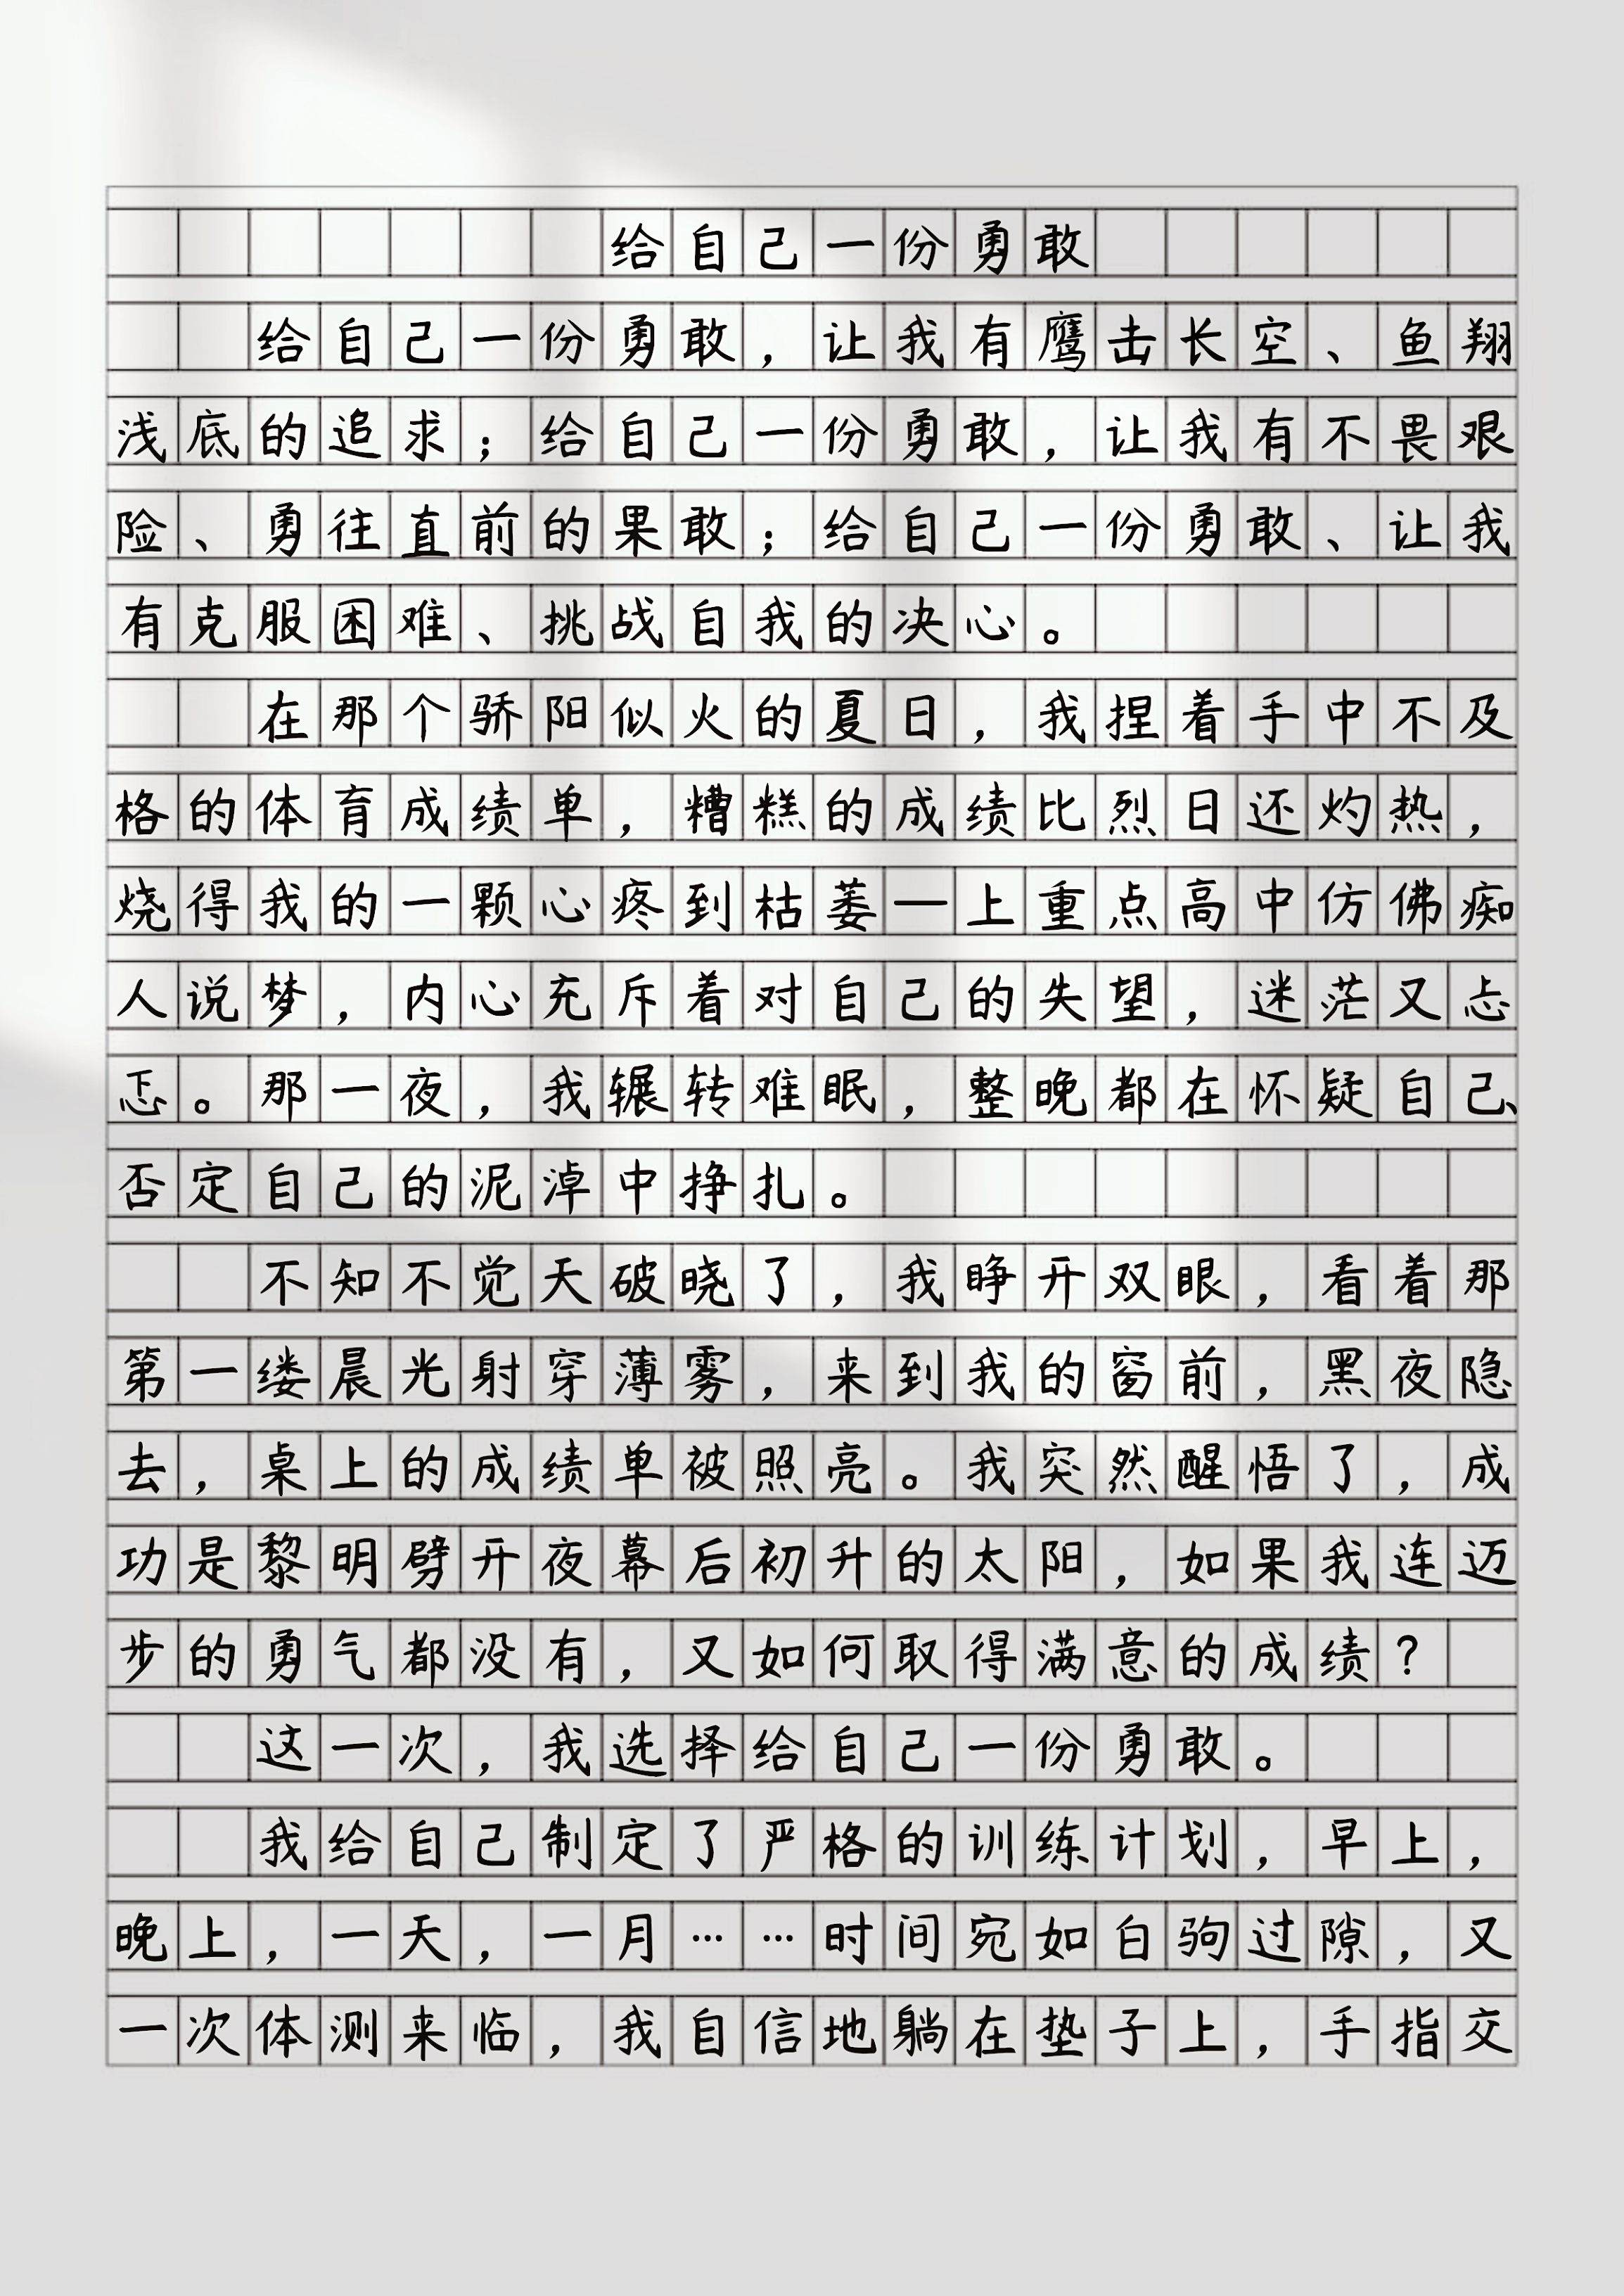 给自己一份勇敢
给自己一份勇敢，让我有鹰击长空、鱼翔
浅底的追求；给自己一份勇敢，让我有不畏艰
险、勇往直前的果敢；给自己一份勇敢、让我
有克服困难、挑战自我的决心。
在那个骄阳似火的夏日，我捏着手中不及
格的体育成绩单，糟糕的成绩比烈日还灼热，
烧得我的一颗心疼到枯萎—上重点高中仿佛痴
人说梦，内心充斥着对自己的失望，迷茫又忐
忑。那一夜，我辗转难眠，整晚都在怀疑自己、
否定自己的泥淖中挣扎。
不知不觉天破晓了，我睁开双眼，看着那
第一缕晨光射穿薄雾，来到我的窗前，黑夜隐
去，桌上的成绩单被照亮。我突然醒悟了，成
功是黎明劈开夜幕后初升的太阳，如果我连迈
步的勇气都没有，又如何取得满意的成绩？
这一次，我选择给自己一份勇敢。
我给自己制定了严格的训练计划，早上，
晚上，一天，一月……时间宛如白驹过隙，又
一次体测来临，我自信地躺在垫子上，手指交